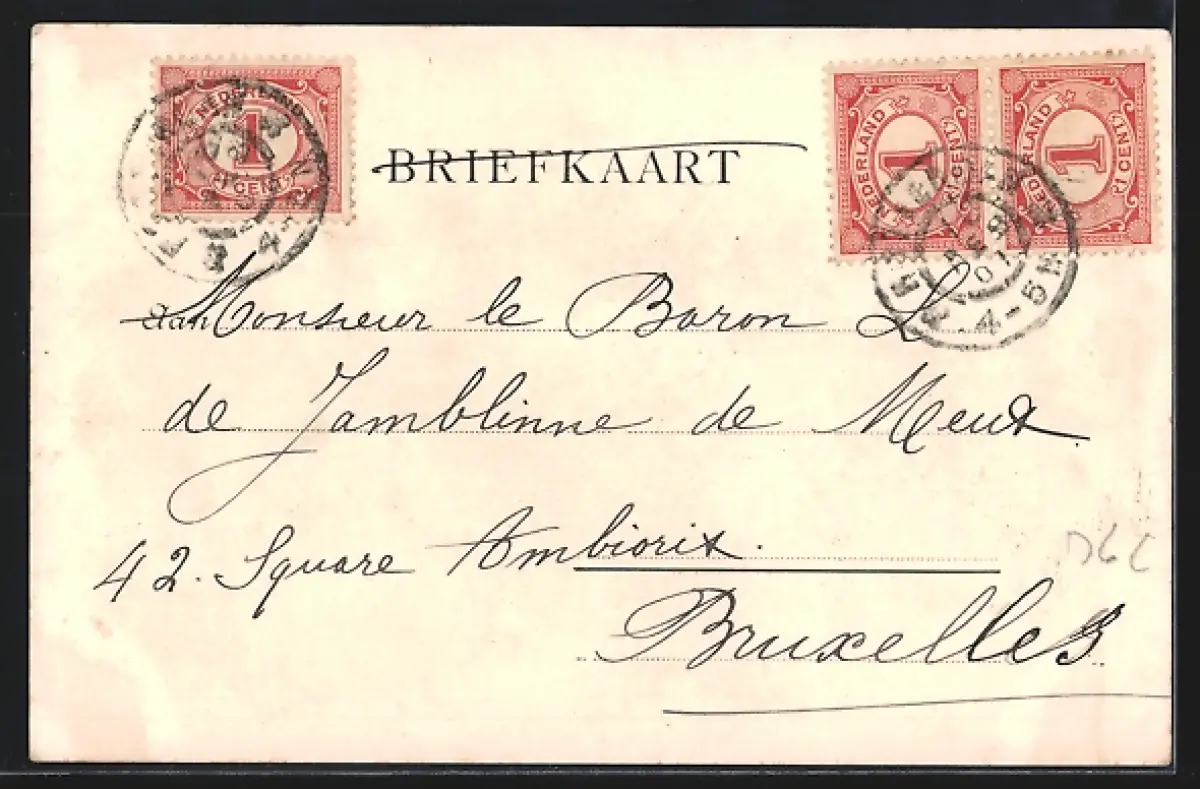 NEDERLAND
1
CENT
BRIEFKAART
NEDERLAND
1
CENT
NEDERLAND
1
CENT
4-5N
Aan Monsieur le Baron L
de Jamblinne de Meux
42. Square Ambiorix.
Bruxelles